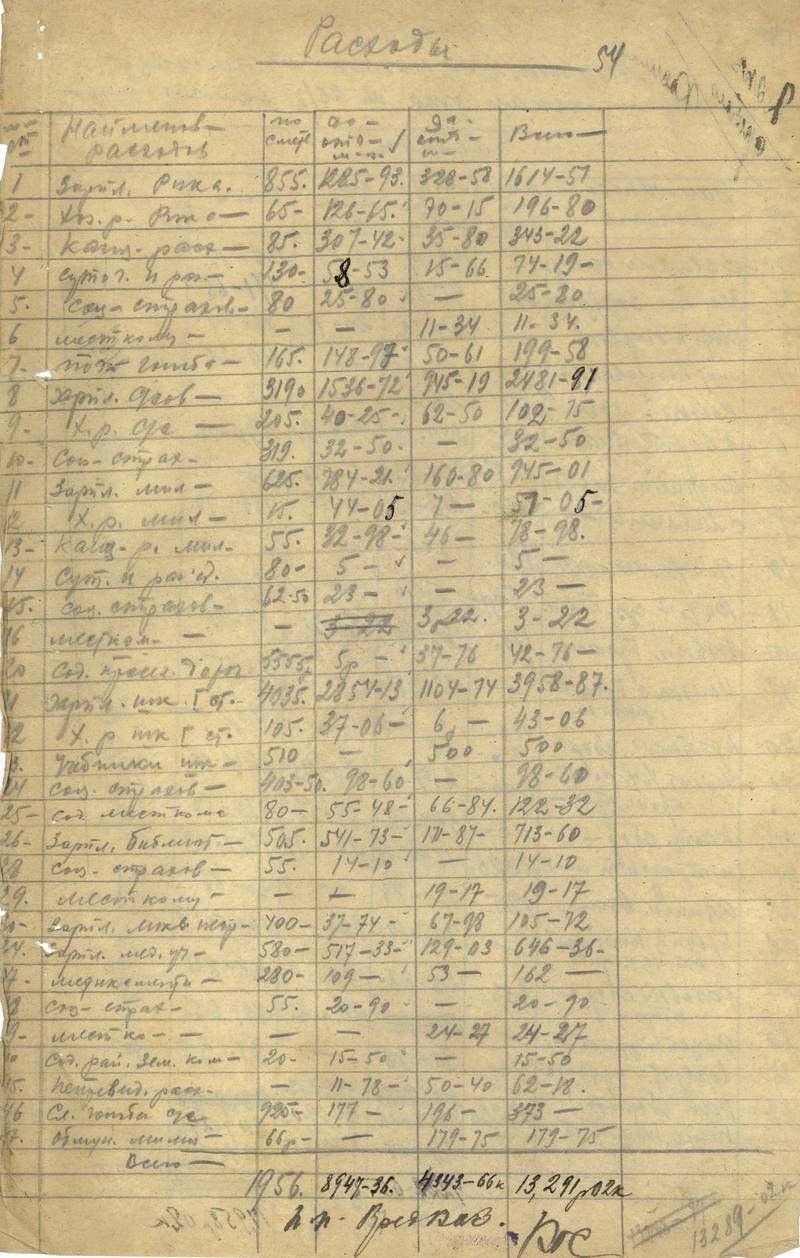 Расходы
54
Наименов- расходов по смете до окто- м-ц За октя- Всего
1 Зарпл. Рика. 855. 1285-93. 328-58 1614-51
2- Хоз. р. Рика- 65- 126-65. 70-15 196-80
3- Канц- расх- 85. 307-42- 35-80 343-22
4 Суточ. и раз- 130- 58-53 15-66. 74-19-
5. Соц- страхов- 80 25-80 - 25-80
6 месткому - - - 11-34 11-34.
7- 165. 148-97 50-61 199-58
8 Зарпл. 3190 1536-72 945-19 2481-91
9- Х. р. 205. 40-25-. 62-50 102-75
10- Соц- страх- 319. 32-50. - 32-50
11 Зарпл. мил- 625. 784-21. 160-80 945-01
12 Х. р. мил- 15. 44-05 7- 51-05-
13- Канц- р. мил- 55. 32-98- 46- 78-98.
14 Сут. и раз'ед. 80- 5- - 5-
15. Соц. страхов- 62-50 23- - 23-
16 местком- - - 3-22 3р22. 3-22
20 Сод. 5р - 37-76 42-76-
1 Зарпл. шк. I ст. 4035. 2854-13 1104-74 3958-87.
2 Х. р шк I ст. 105. 37-06- 6р- 43-06
3. Учебники шк- 510 - 500 500
24 Соц. страхов- 403-50. 98-60 - 98-60
25- Сод. месткома 80- 55-48- 66-84. 122-32
26- Зарпл. библиот.- 505. 541-73- 171-87- 713-60
28 Соц- страхов- 55. 14-10 - 14-10
29. месткому- - - 19-17 19-17
30- Зарпл. 400- 37-74- 67-98 105-72
34. Зарпл. мед. уч- 580- 517-33- 129-03 646-36-
37- медикаменты- 280- 109- 53- 162-
38 Соц- страх- 55. 20-90- - 20-90
9- местко- - - - 24-27 24-27
Сод. рай. зем. ком- 20- 15-50 - 15-50
45. Непревид. расх- - 11-78- 50-40 62-18.
46 Сл. 925- 177- 196- 373-
47. Обмун. милиц- 66р- - 179-75 179-75
Всего-
1956. 8947-36. 4343-66к 13,291р02к
п. п. Предвик.
13289-02к